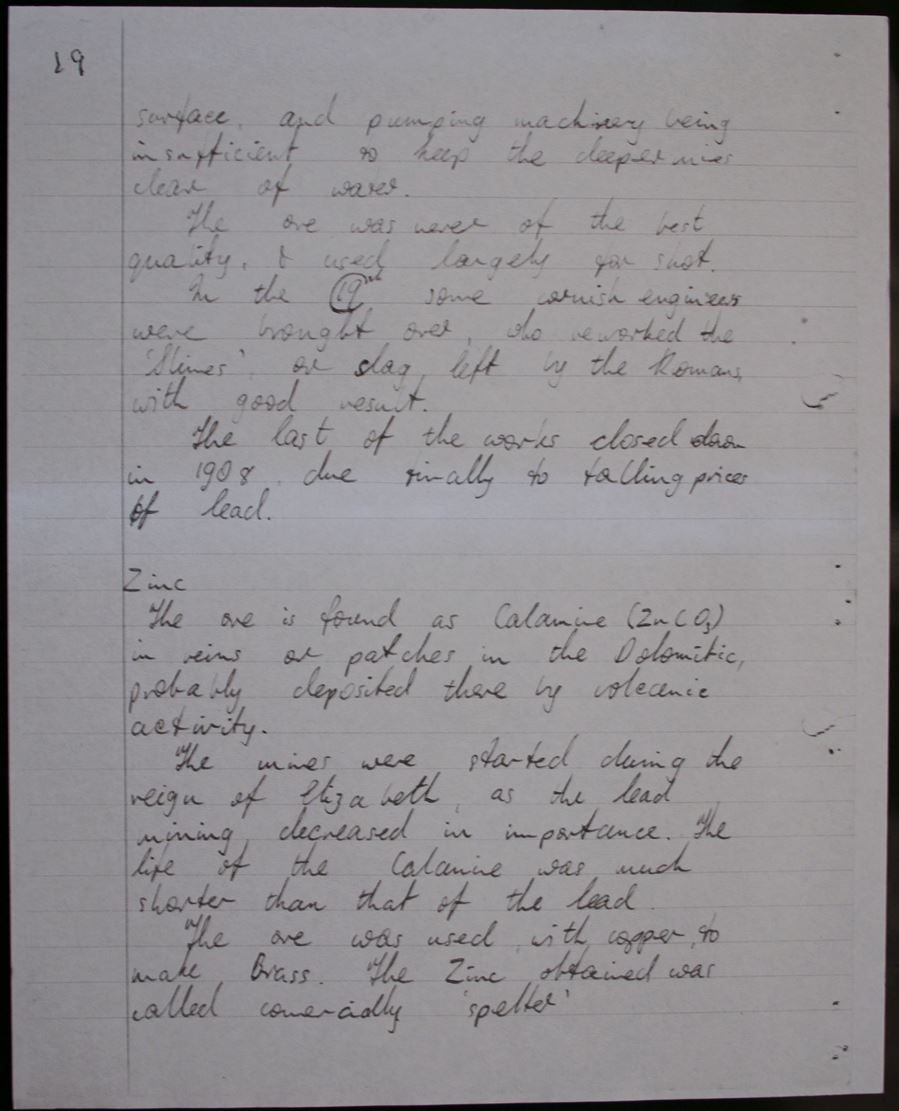 19
surface, and pumping machinery being
insufficient to keep the deeper mines
clear of water.
The ore was never of the best
quality, & used largely for shot.
In the 19th some cornish engineers
were brought over, who reworked the
'Slimes', or slag, left by the Romans,
with good result.
The last of the works closed down
in 1908, due finally to falling prices
of lead.
Zinc
The ore is found as Calamine (ZnCO3)
in veins or patches in the Dolomitic,
probably deposited there by volcanic
activity.
The mines were started during the
reign of Elizabeth, as the lead
mining decreased in importance. The
life of the Calamine was much
shorter than that of the lead.
The ore was used, with copper, to
make Brass. The Zinc obtained was
called comercially 'spelter'